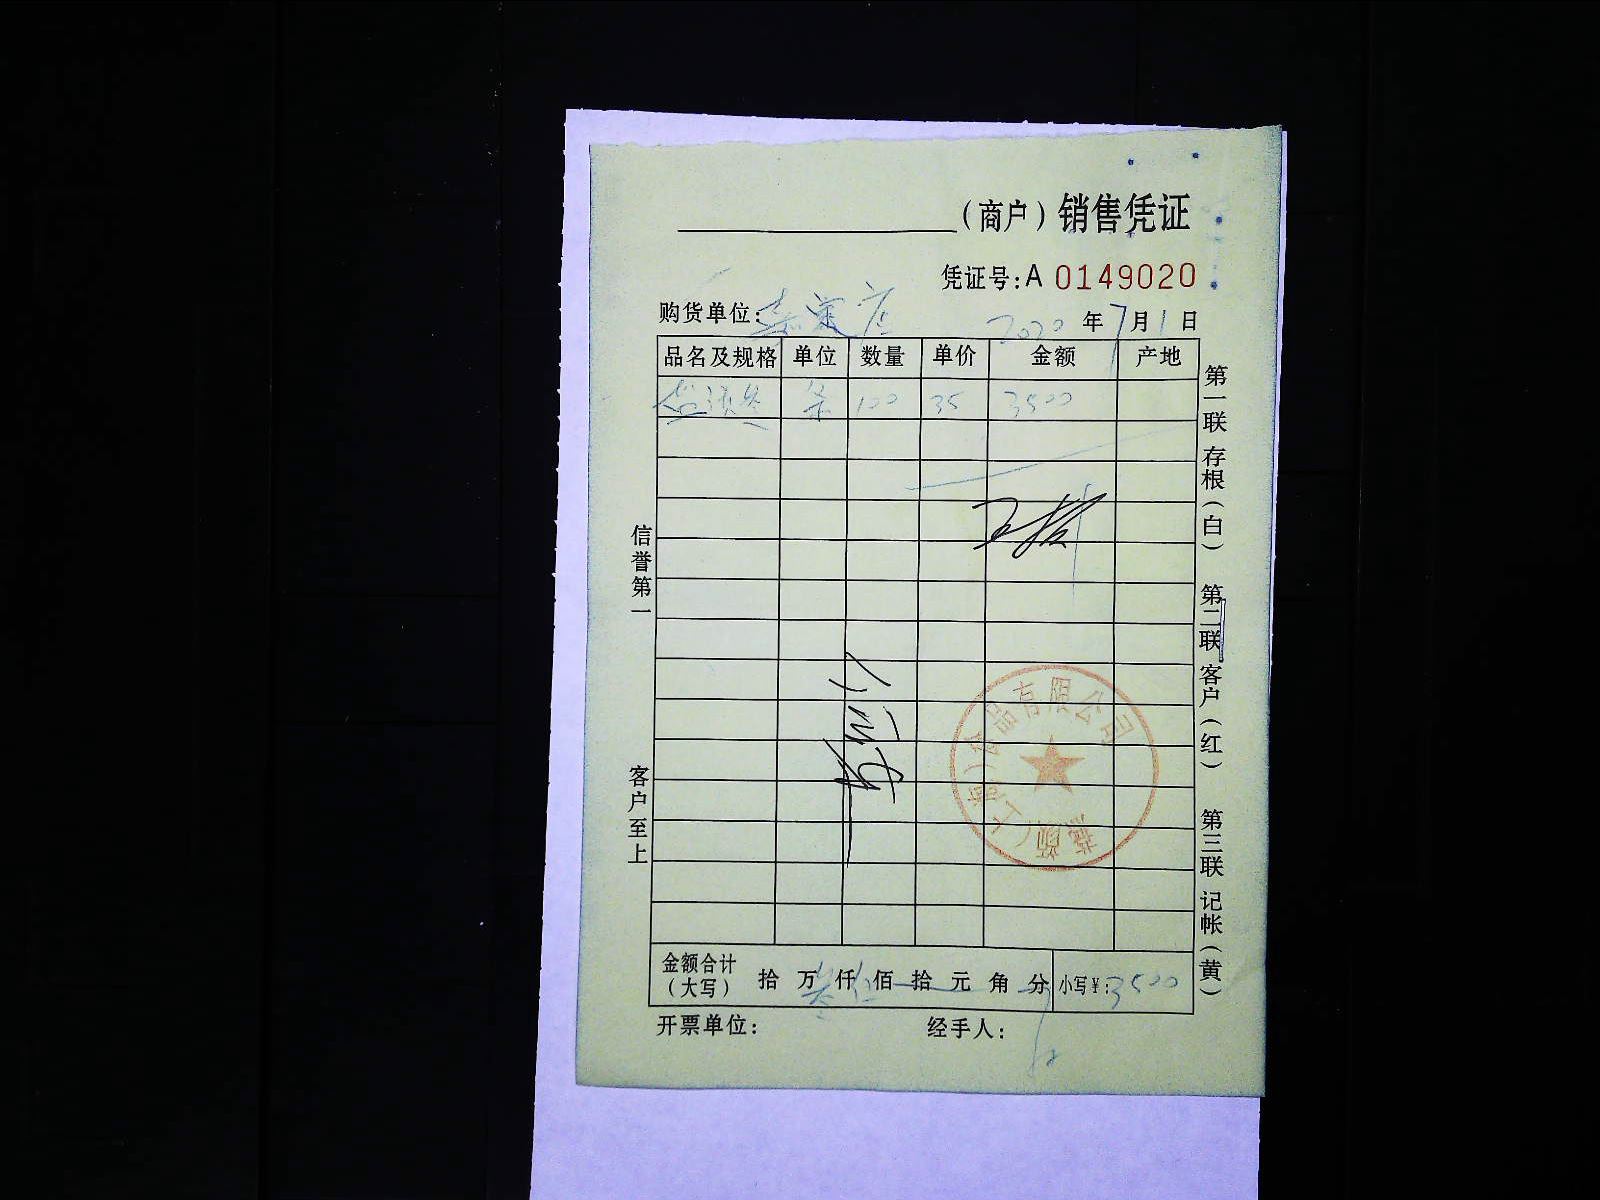 （商户）销售凭证
凭证号:A 0149020
购货单位: 嘉定店 2020 年 7 月 1 日
品名及规格 单位 数量 单价 金额 产地
条 100 35 3500
信誉第一
客户至上
第一联 存根（白） 第二联 客户（红） 第三联 记帐（黄）
（上海）食品有限公司
金额合计（大写） 拾 万 叁 仟 伍 佰 拾 元 角 分 小写¥: 3500
开票单位: 经手人: